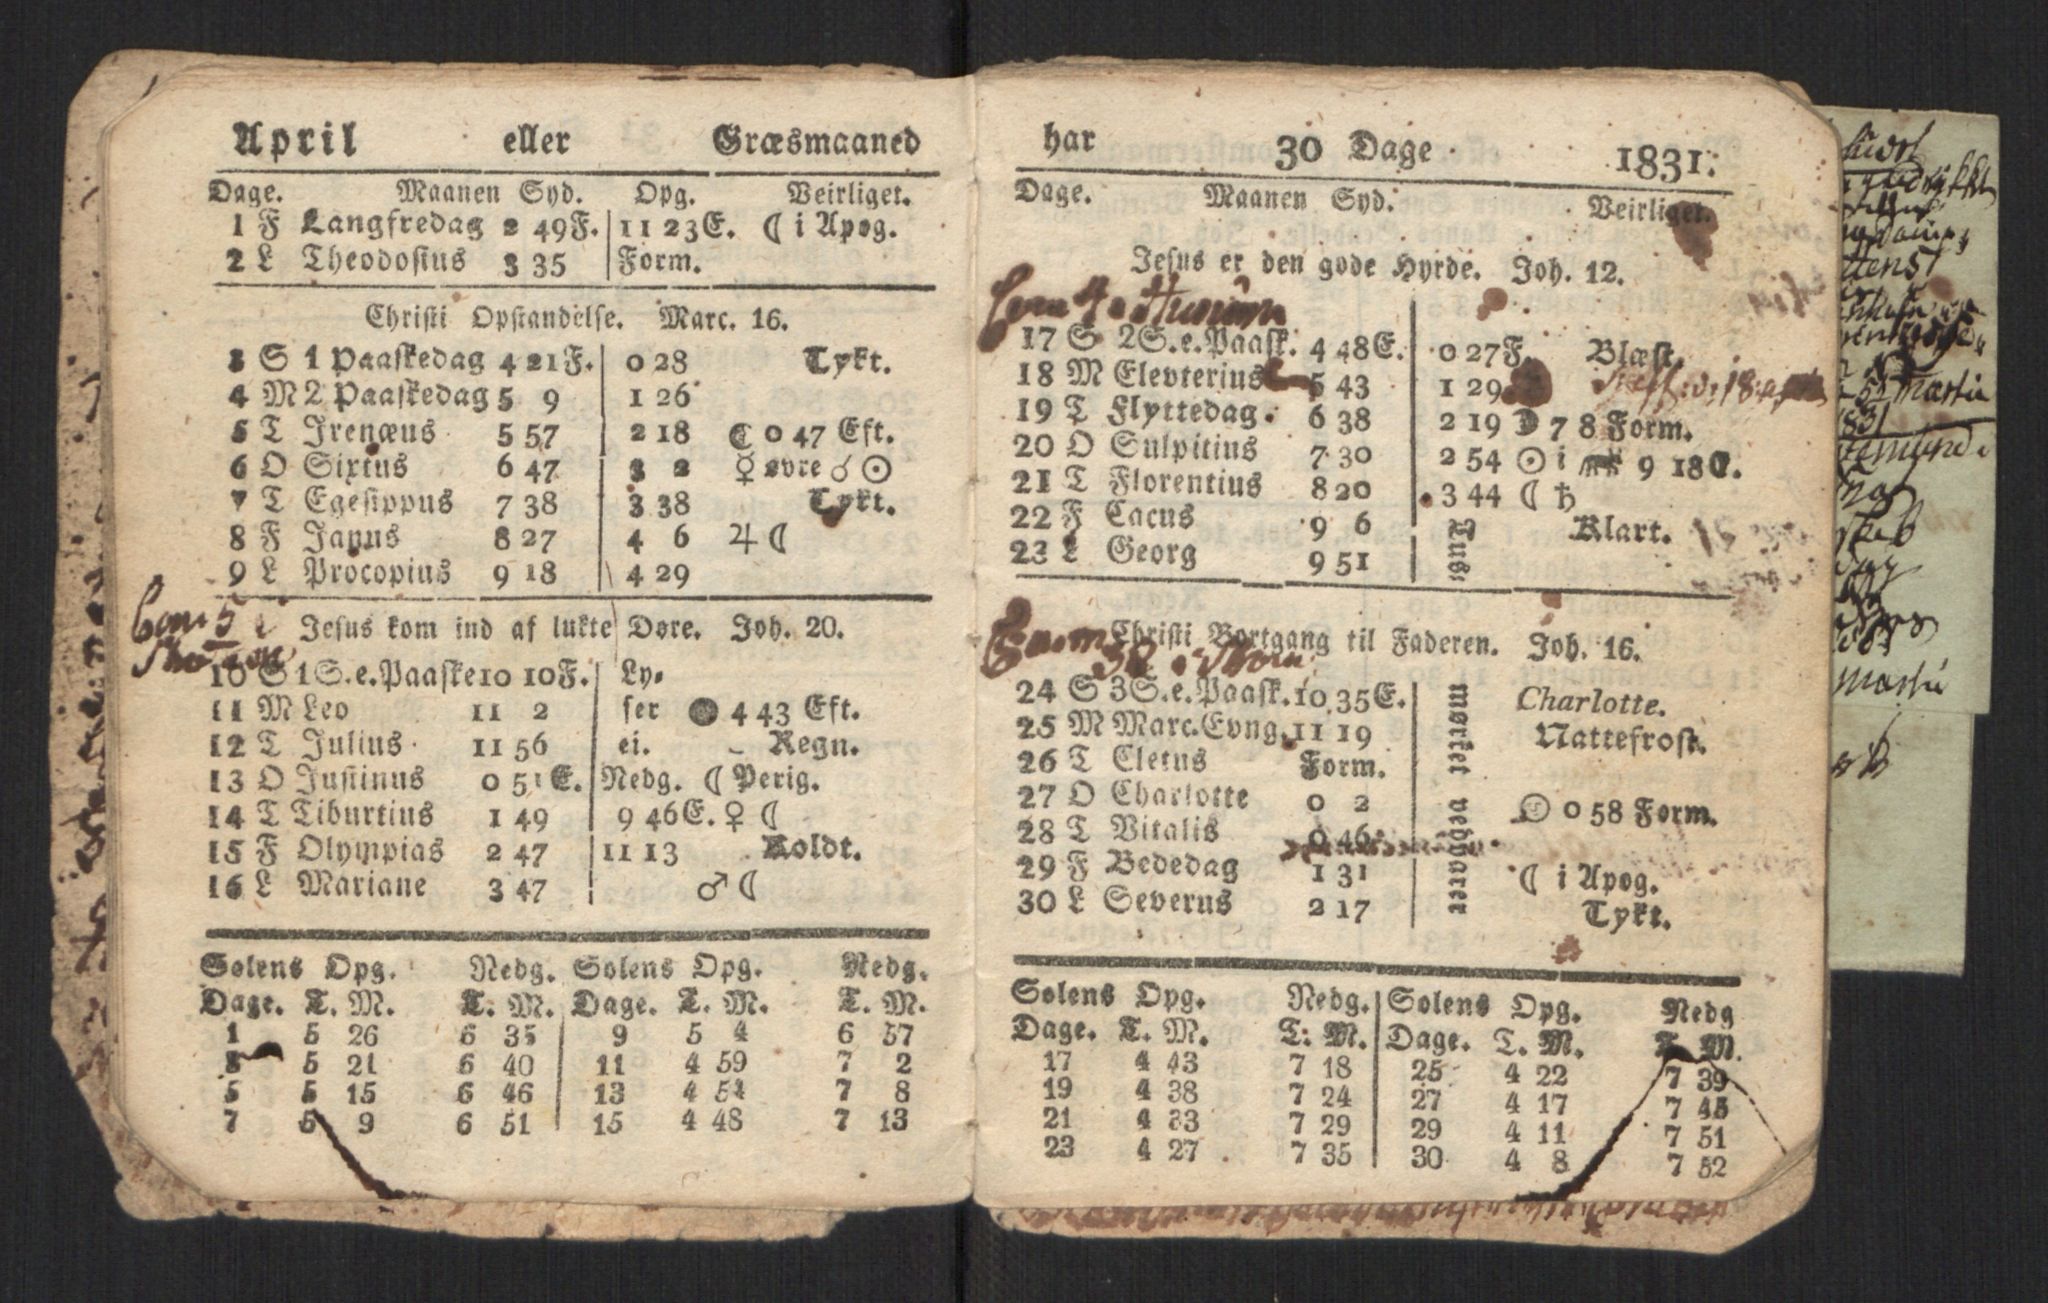 April eller Græsmaaned
Dage. Maanen Syd. Opg. Veirliget.
1 F Langfredag 2 49F. 11 23E. ☾ i Apog.
2 L Theodosius 3 35 Form.
Christi Opstandelse. Marc. 16.
3 S 1 Paaskedag 4 21F. 0 28 Tykt.
4 M 2 Paaskedag 5 9 1 26
5 T Irenæus 5 57 2 18 ☾ 0 47 Eft.
6 O Sixtus 6 47 3 2 ☿ øvre ☌ ☉
7 T Egesippus 7 38 3 38 Tykt.
8 F Janus 8 27 4 6 ♃ ☾
9 L Procopius 9 18 4 29
Com 5
Jesus kom ind af lukte Døre. Joh. 20.
10 S 1 S.e.Paaske 10 10F. Ly-
11 M Leo 11 2 ser ● 4 43 Eft.
12 T Julius 11 56 ei. Regn.
13 O Justinus 0 51E. Nedg. ☾ Perig.
14 T Tiburtius 1 49 9 46E. ♀ ☾
15 F Olympias 2 47 11 13 Koldt.
16 L Mariane 3 47 ♂ ☾
Solens Opg. Nedg. Solens Opg. Nedg.
Dage. T. M. T. M. Dage. T. M. T. M.
1 5 26 6 35 9 5 4 6 57
3 5 21 6 40 11 4 59 7 2
5 5 15 6 46 13 4 54 7 8
7 5 9 6 51 15 4 48 7 13
har 30 Dage 1831.
Dage. Maanen Syd. Veirliget.
Jesus er den gode Hyrde. Joh. 12.
17 S 2S.e.Paask. 4 48E. 0 27F. Blæst.
18 M Elevterius 5 43 1 29
19 T Flyttedag. 6 38 2 19 ☽ 7 8 Form.
20 O Sulpitius 7 30 2 54 ☉ i ♉ 9 18E.
21 T Florentius 8 20 3 44 ☾ ♄
22 F Cacus 9 6 Klart.
23 L Georg 9 51
Tus-
Christi Bortgang til Faderen. Joh. 16.
24 S 3S.e.Paask. 10 35E. Charlotte.
25 M Marc.Evng. 11 19 Nattefrost.
26 T Cletus Form.
27 O Charlotte 0 2 ☉ 0 58 Form.
28 T Vitalis 0 46
29 F Bededag 1 31 ☾ i Apog.
30 L Severus 2 17 Tykt.
mørket vedvarer
Solens Opg. Nedg. Solens Opg. Nedg
Dage. T. M. T. M. Dage. T. M. T. M.
17 4 43 7 18 25 4 22 7 39
19 4 38 7 24 27 4 17 7 45
21 4 33 7 29 29 4 11 7 51
23 4 27 7 35 30 4 8 7 52